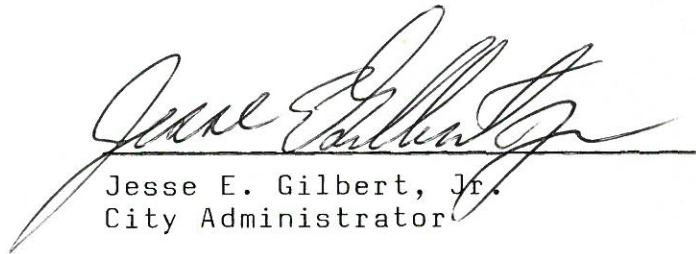 Jesse E Gilbert Jr
Jesse E. Gilbert, Jr.
City Administrator